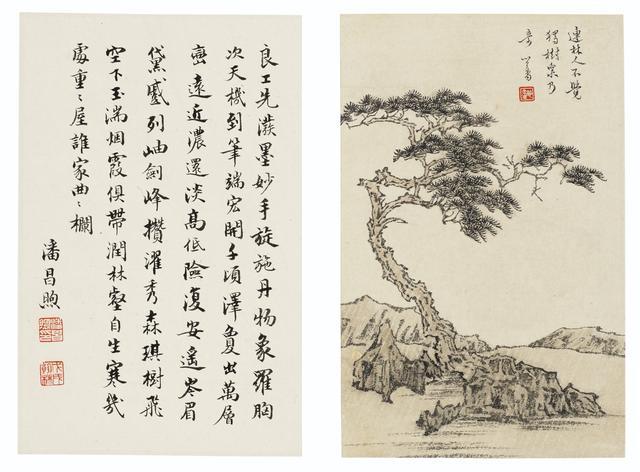 連林人不覺
獨樹衆乃
奇 心畬
良工先潑墨妙手旋施丹物象羅胸
次天機到筆端宏開千頃澤疊出萬層
巒遠近濃還淡高低險復安遙岑眉
黛蹙列岫劍峰攢濯秀森琪樹飛
空下玉湍烟霞俱帶潤林壑自生寒幾
處重〻屋誰家曲〻欄
潘昌煦